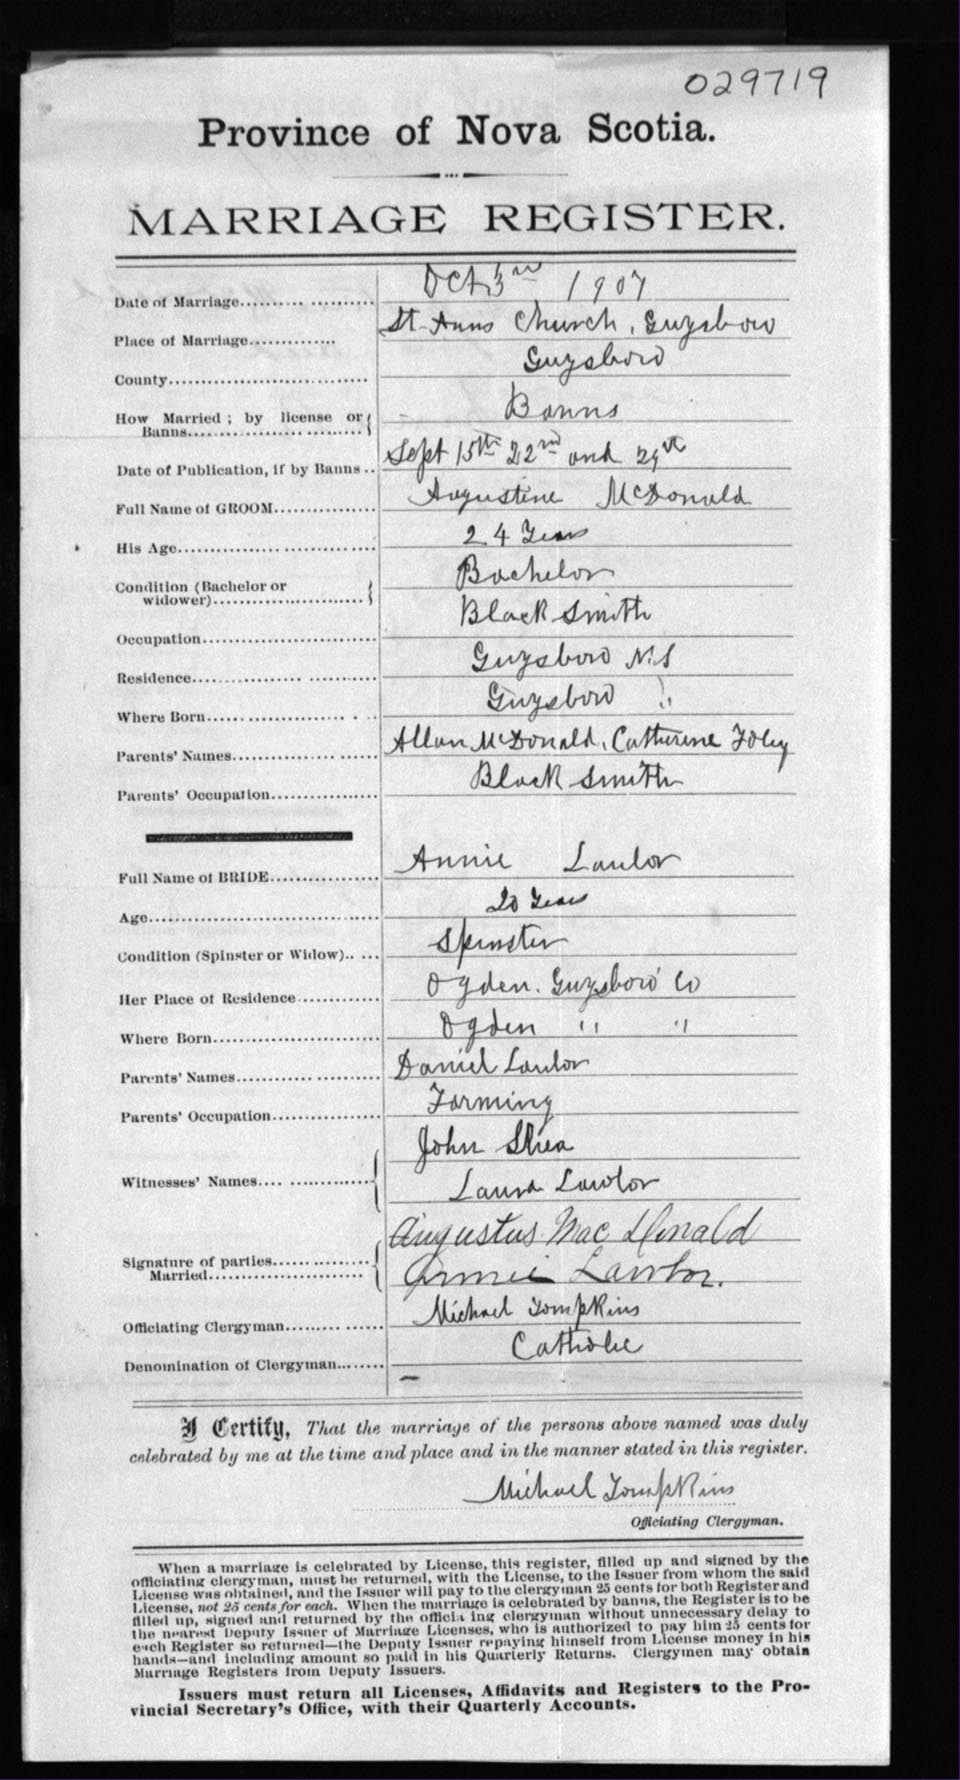 029719
Province of Nova Scotia.
MARRIAGE REGISTER.
Date of Marriage.................... Oct 3rd 1907
Place of Marriage............. St. Anns Church, Guysboro
County.............................. Guysboro
How Married ; by license or
Banns.......................... Banns
Date of Publication, if by Banns .. Sept 15th 22nd and 29th
Full Name of GROOM............... Augustine McDonald
His Age............................. 24 Years
Condition (Bachelor or
widower)....................... Bachelor
Occupation.......................... Black Smith
Residence........................... Guysboro N.S
Where Born.................. . . Guysboro "
Parents' Names..................... Allan McDonald, Catherine Foley
Parents' Occupation................ Black Smith
Full Name of BRIDE................ Annie Lawlor
Age.................................. 20 Years
Condition (Spinster or Widow).. ... Spinster
Her Place of Residence............ Ogden. Guysboro Co
Where Born......................... Ogden " "
Parents' Names..................... Daniel Lawlor
Parents' Occupation................ Farming
John Shea
Witnesses' Names.... ..............
Laura Lawlor
Augustus Mac Donald
Signature of parties................
Married.......................
Annie Lawlor.
Officiating Clergyman............... Michael Tompkins
Denomination of Clergyman........ Catholic
I Certify, That the marriage of the persons above named was duly
celebrated by me at the time and place and in the manner stated in this register.
Michael Tompkins
Officiating Clergyman.
When a marriage is celebrated by License, this register, filled up and signed by the
officiating clergyman, must be returned, with the License, to the Issuer from whom the said
License was obtained, and the Issuer will pay to the clergyman 25 cents for both Register and
License, not 25 cents for each. When the marriage is celebrated by banns, the Register is to be
filled up, signed and returned by the officia ing clergyman without unnecessary delay to
the nearest Deputy Issuer of Marriage Licenses, who is authorized to pay him 25 cents for
each Register so returned—the Deputy Issuer repaying himself from License money in his
hands—and including amount so paid in his Quarterly Returns. Clergymen may obtain
Marriage Registers from Deputy Issuers.
Issuers must return all Licenses, Affidavits and Registers to the Pro-
vincial Secretary's Office, with their Quarterly Accounts.